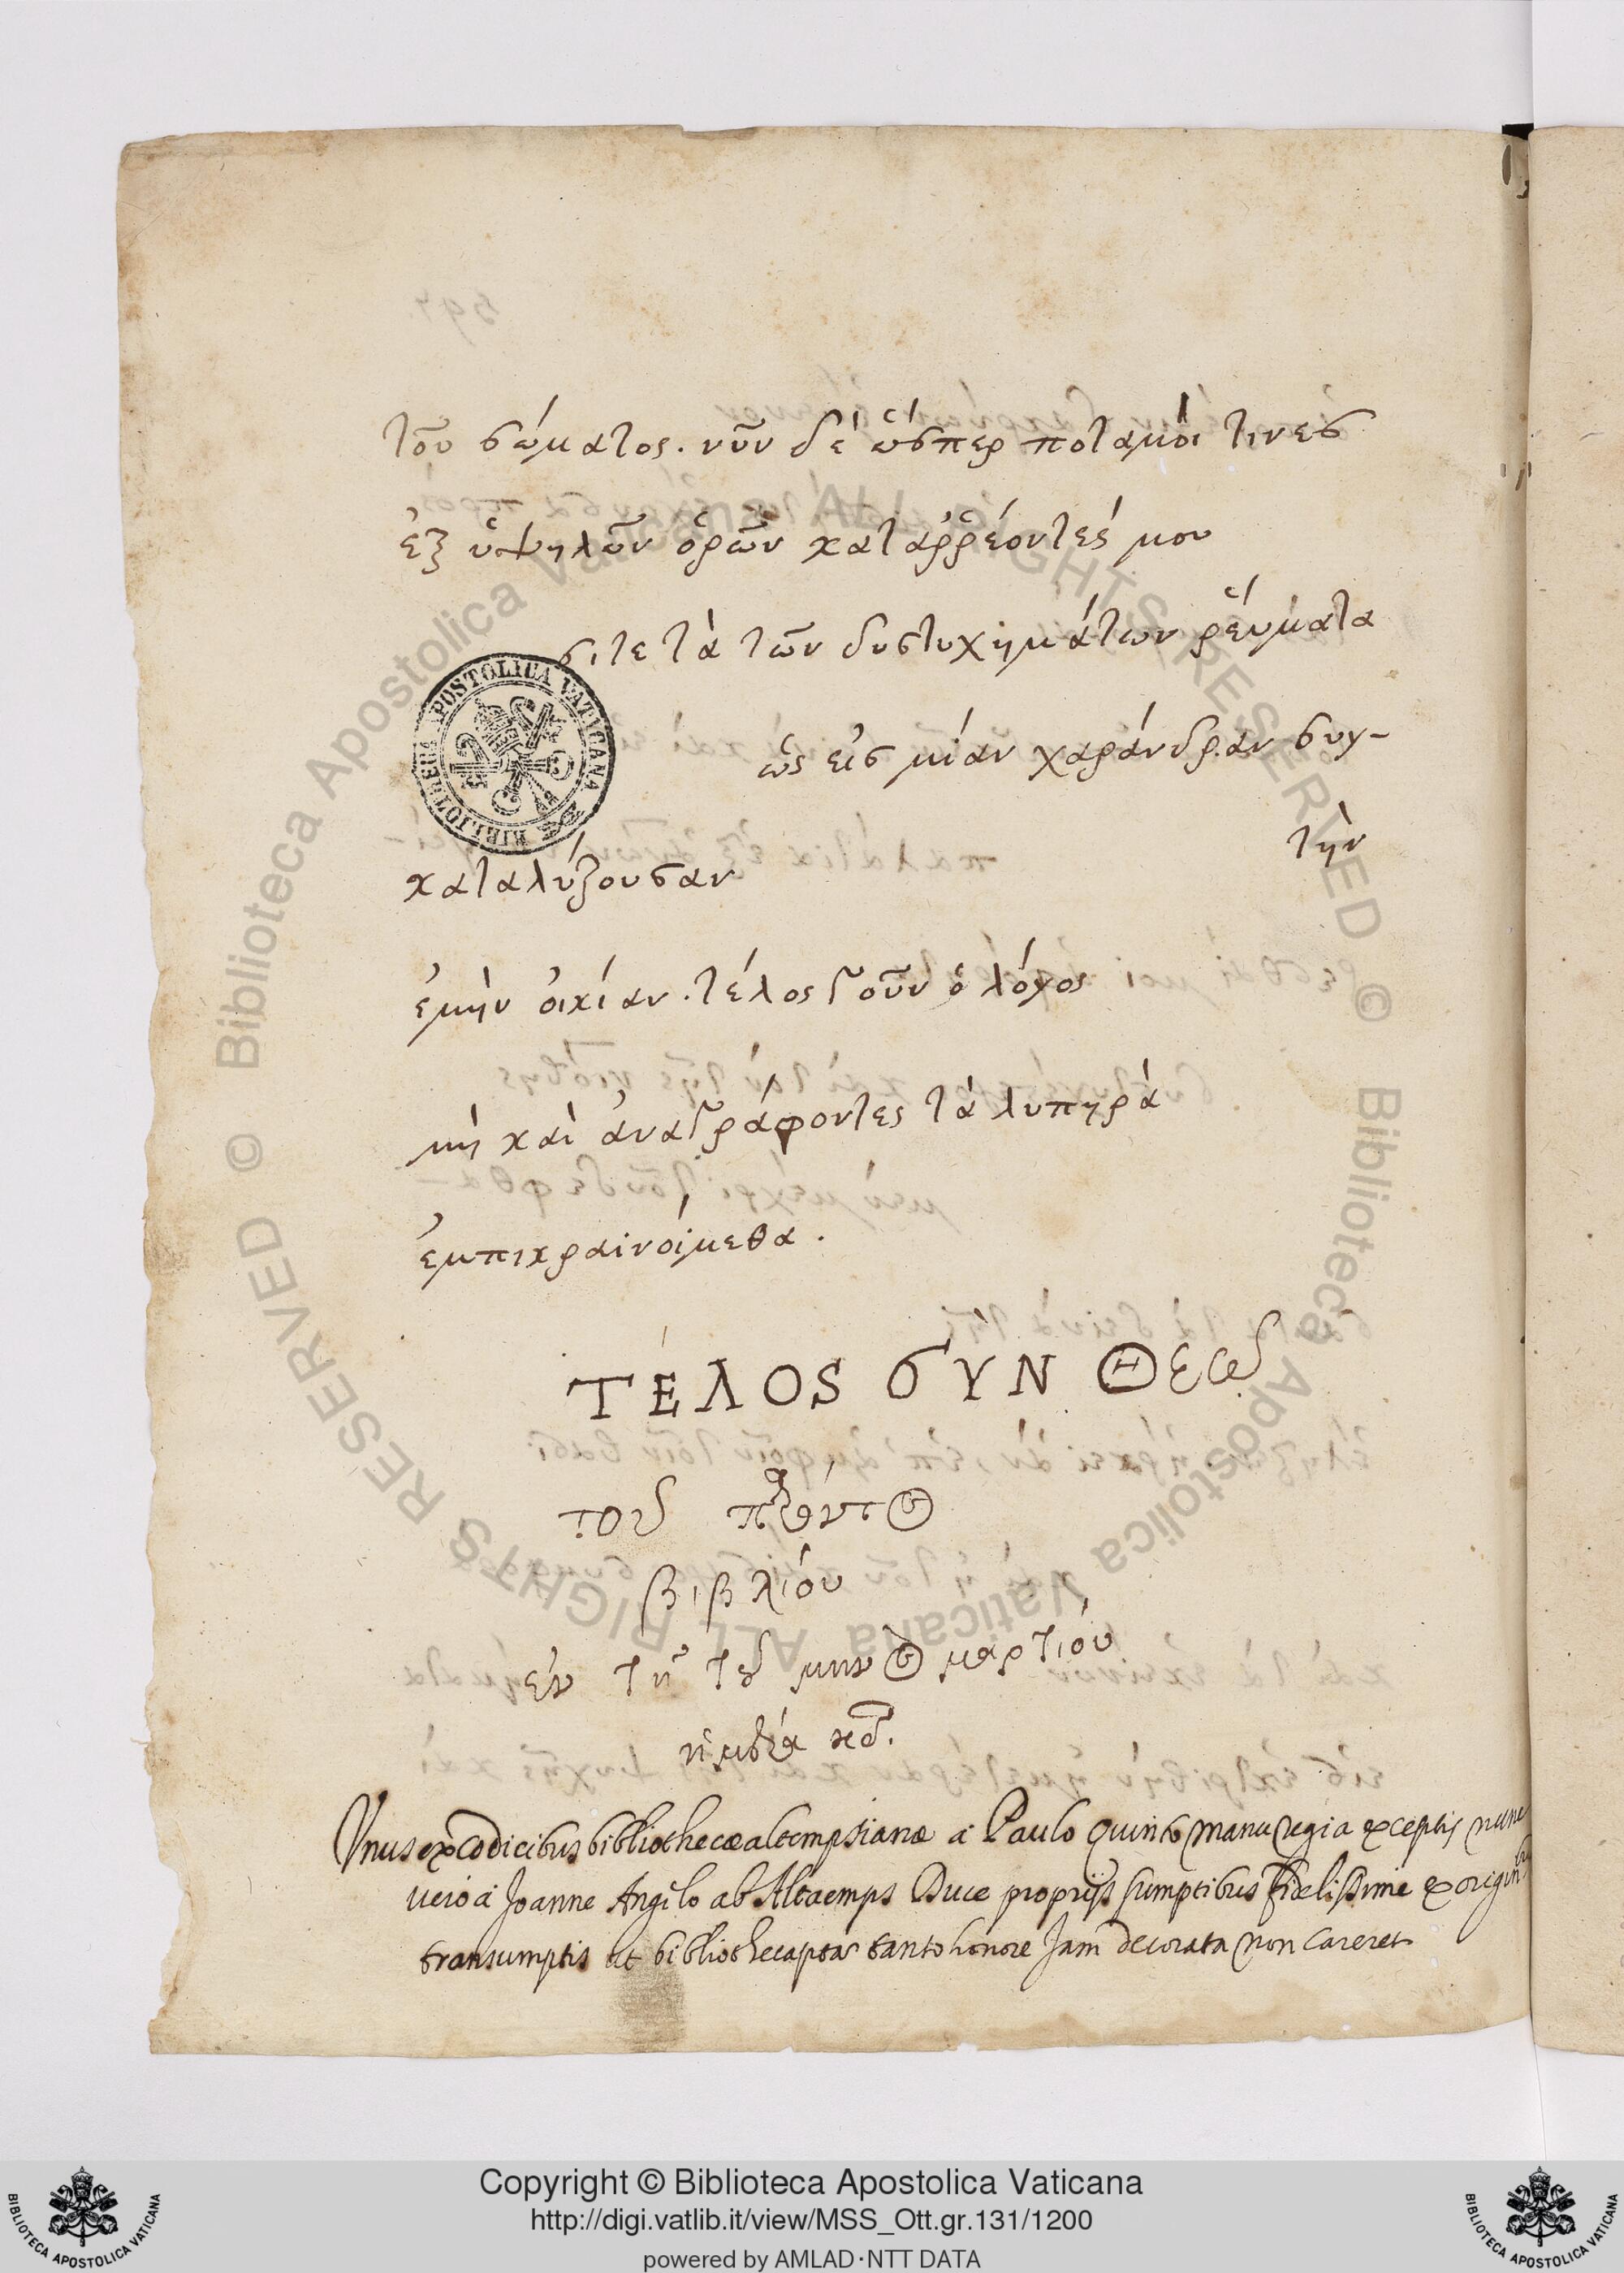 τοῦ σώματος. νῦν δὲ ὥσπερ ποταμοὶ τινες
ἐξ ὑψηλῶν ὀρῶν καταῤῥέοντές μου
σιτε τὰ τῶν δυστυχημάτων ῥεύματα
ὡς εἰς μίαν χαράνδραν συγ-
κατακλύζουσαν τὴν
ἐμὴν οἰκίαν. τέλος γοῦν ὁ λόγος
μὴ καὶ ἀναγράφοντες τὰ λυπηρὰ
ἐμπικραινοίμεθα.
ΤΈΛΟΣ ΣΥΝ Θεῶ
τοῦ
βιβλίου
ἐν τῇ τοῦ μηνὸς μαρτίου
κδ.
Unus ex Codicibus bibliothecæ altempsianæ a Paulo Quinto manu regia exceptis nunc
vero a Joanne Angelo ab Altaemps Duce proprijs sumptibus fidelissime ex origin
transumptis ut bibliotheca tanto honore Jam decorata non careret
BIBLIOTHECA APOSTOLICA VATICANA
© Biblioteca Apostolica Vaticana ALL RIGHTS RESERVED © Biblioteca Apostolica Vaticana ALL RIGHTS RESERVED
Copyright © Biblioteca Apostolica Vaticana
http://digi.vatlib.it/view/MSS_Ott.gr.131/1200
powered by AMLAD·NTT DATA
BIBLIOTECA APOSTOLICA VATICANA
BIBLIOTECA APOSTOLICA VATICANA